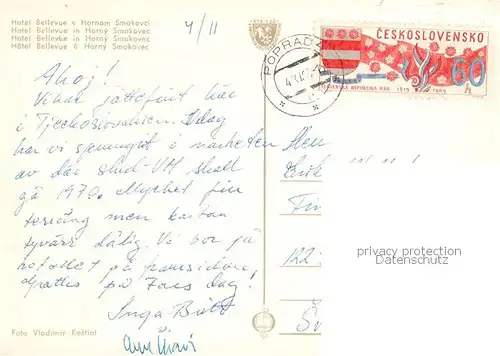 Hotel Bellevue v Hornom Smokovci
Hotel Bellevue in Horný Smokovec
Hotel Bellevue in Horný Smokovec
Hôtel Bellevue à Horný Smokovec
4/11
ČESKOSLOVENSKO
60 h
SLOVENSKÁ REPUBLIKA RÁD 1919 1969
POPRAD
Ahoj!
Vi har jättefint här
i Tjeckoslovakien. Idag
har vi sprungit i närheten
av där stud-VM skall
gå 1970. Mycket fin
terräng men kartan
tyvärr dålig. Vi bor på
hotellet på framsidan.
Grattis på Fars dag!
Inga-Britt
122
privacy protection
Datenschutz
Foto Vladimír Koštial